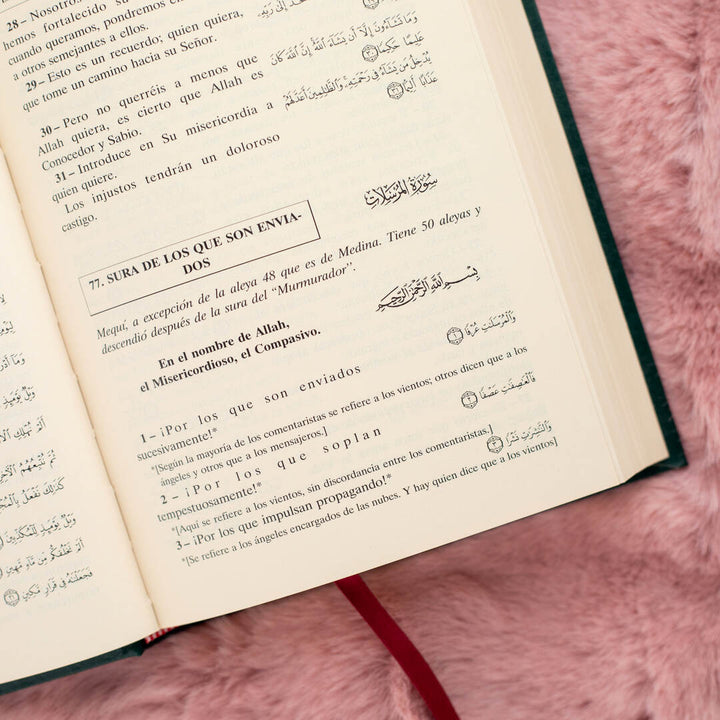 28 – Nosotros
hemos fortalecido su
cuando queramos, pondremos en
a otros semejantes a ellos.
29 – Esto es un recuerdo; quien quiera,
que tome un camino hacia su Señor.
30 – Pero no querréis a menos que
Allah quiera, es cierto que Allah es
Conocedor y Sabio.
31 – Introduce en Su misericordia a
quien quiere.
Los injustos tendrán un doloroso
castigo.
وَمَا تَشَاءُونَ إِلَّا أَن يَشَاءَ اللَّهُ إِنَّ اللَّهَ كَانَ
عَلِيمًا حَكِيمًا ٣٠
يُدْخِلُ مَن يَشَاءُ فِي رَحْمَتِهِ وَالظَّالِمِينَ أَعَدَّ لَهُمْ
عَذَابًا أَلِيمًا ٣١
سُورَةُ المُرْسَلَاتِ
77. SURA DE LOS QUE SON ENVIA-
DOS
Mequí, a excepción de la aleya 48 que es de Medina. Tiene 50 aleyas y
descendió después de la sura del “Murmurador”.
بِسْمِ اللَّهِ الرَّحْمَٰنِ الرَّحِيمِ
En el nombre de Allah,
el Misericordioso, el Compasivo.
وَالْمُرْسَلَاتِ عُرْفًا ١
1 – ¡Por los que son enviados
sucesivamente!*
*[Según la mayoría de los comentaristas se refiere a los vientos; otros dicen que a los
ángeles y otros que a los mensajeros.]
فَالْعَاصِفَاتِ عَصْفًا ٢
2 – ¡Por los que soplan
tempestuosamente!*
*[Aquí se refiere a los vientos, sin discordancia entre los comentaristas.]
وَالنَّاشِرَاتِ نَشْرًا ٣
3 – ¡Por los que impulsan propagando!*
*[Se refiere a los ángeles encargados de las nubes. Y hay quien dice que a los vientos]